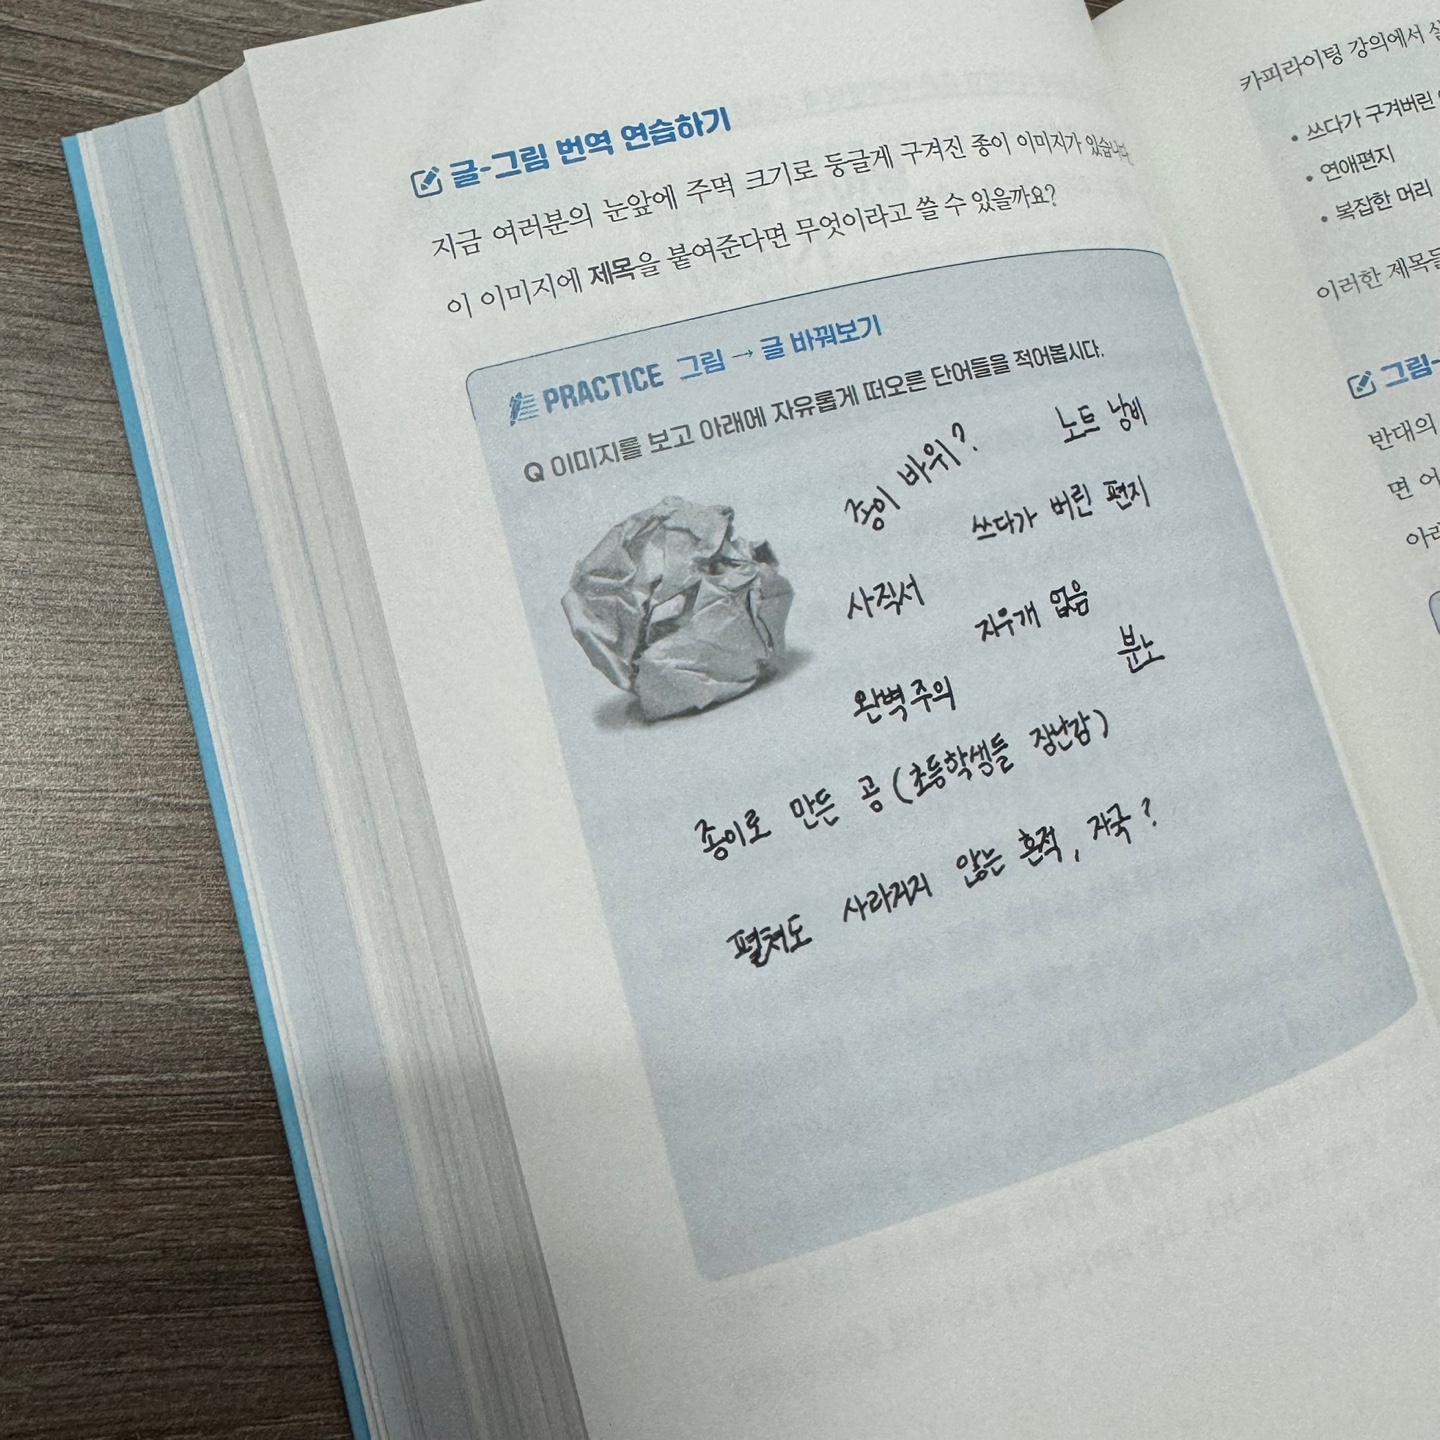 글-그림 번역 연습하기
지금 여러분의 눈앞에 주먹 크기로 둥글게 구겨진 종이 이미지가 있습니다.
이 이미지에 제목을 붙여준다면 무엇이라고 쓸 수 있을까요?
PRACTICE 그림 → 글 바꿔보기
Q 이미지를 보고 아래에 자유롭게 떠오른 단어들을 적어봅시다.
종이 바위?
노트 낭비
쓰다가 버린 편지
사직서
지우개 없음
분노
완벽주의
종이로 만든 공 (초등학생들 장난감)
펼쳐도 사라지지 않는 흔적, 자국?
카피라이팅 강의에서
• 쓰다가 구겨버린
• 연애편지
• 복잡한 머리
이러한 제목들
그림-
반대의
면 어